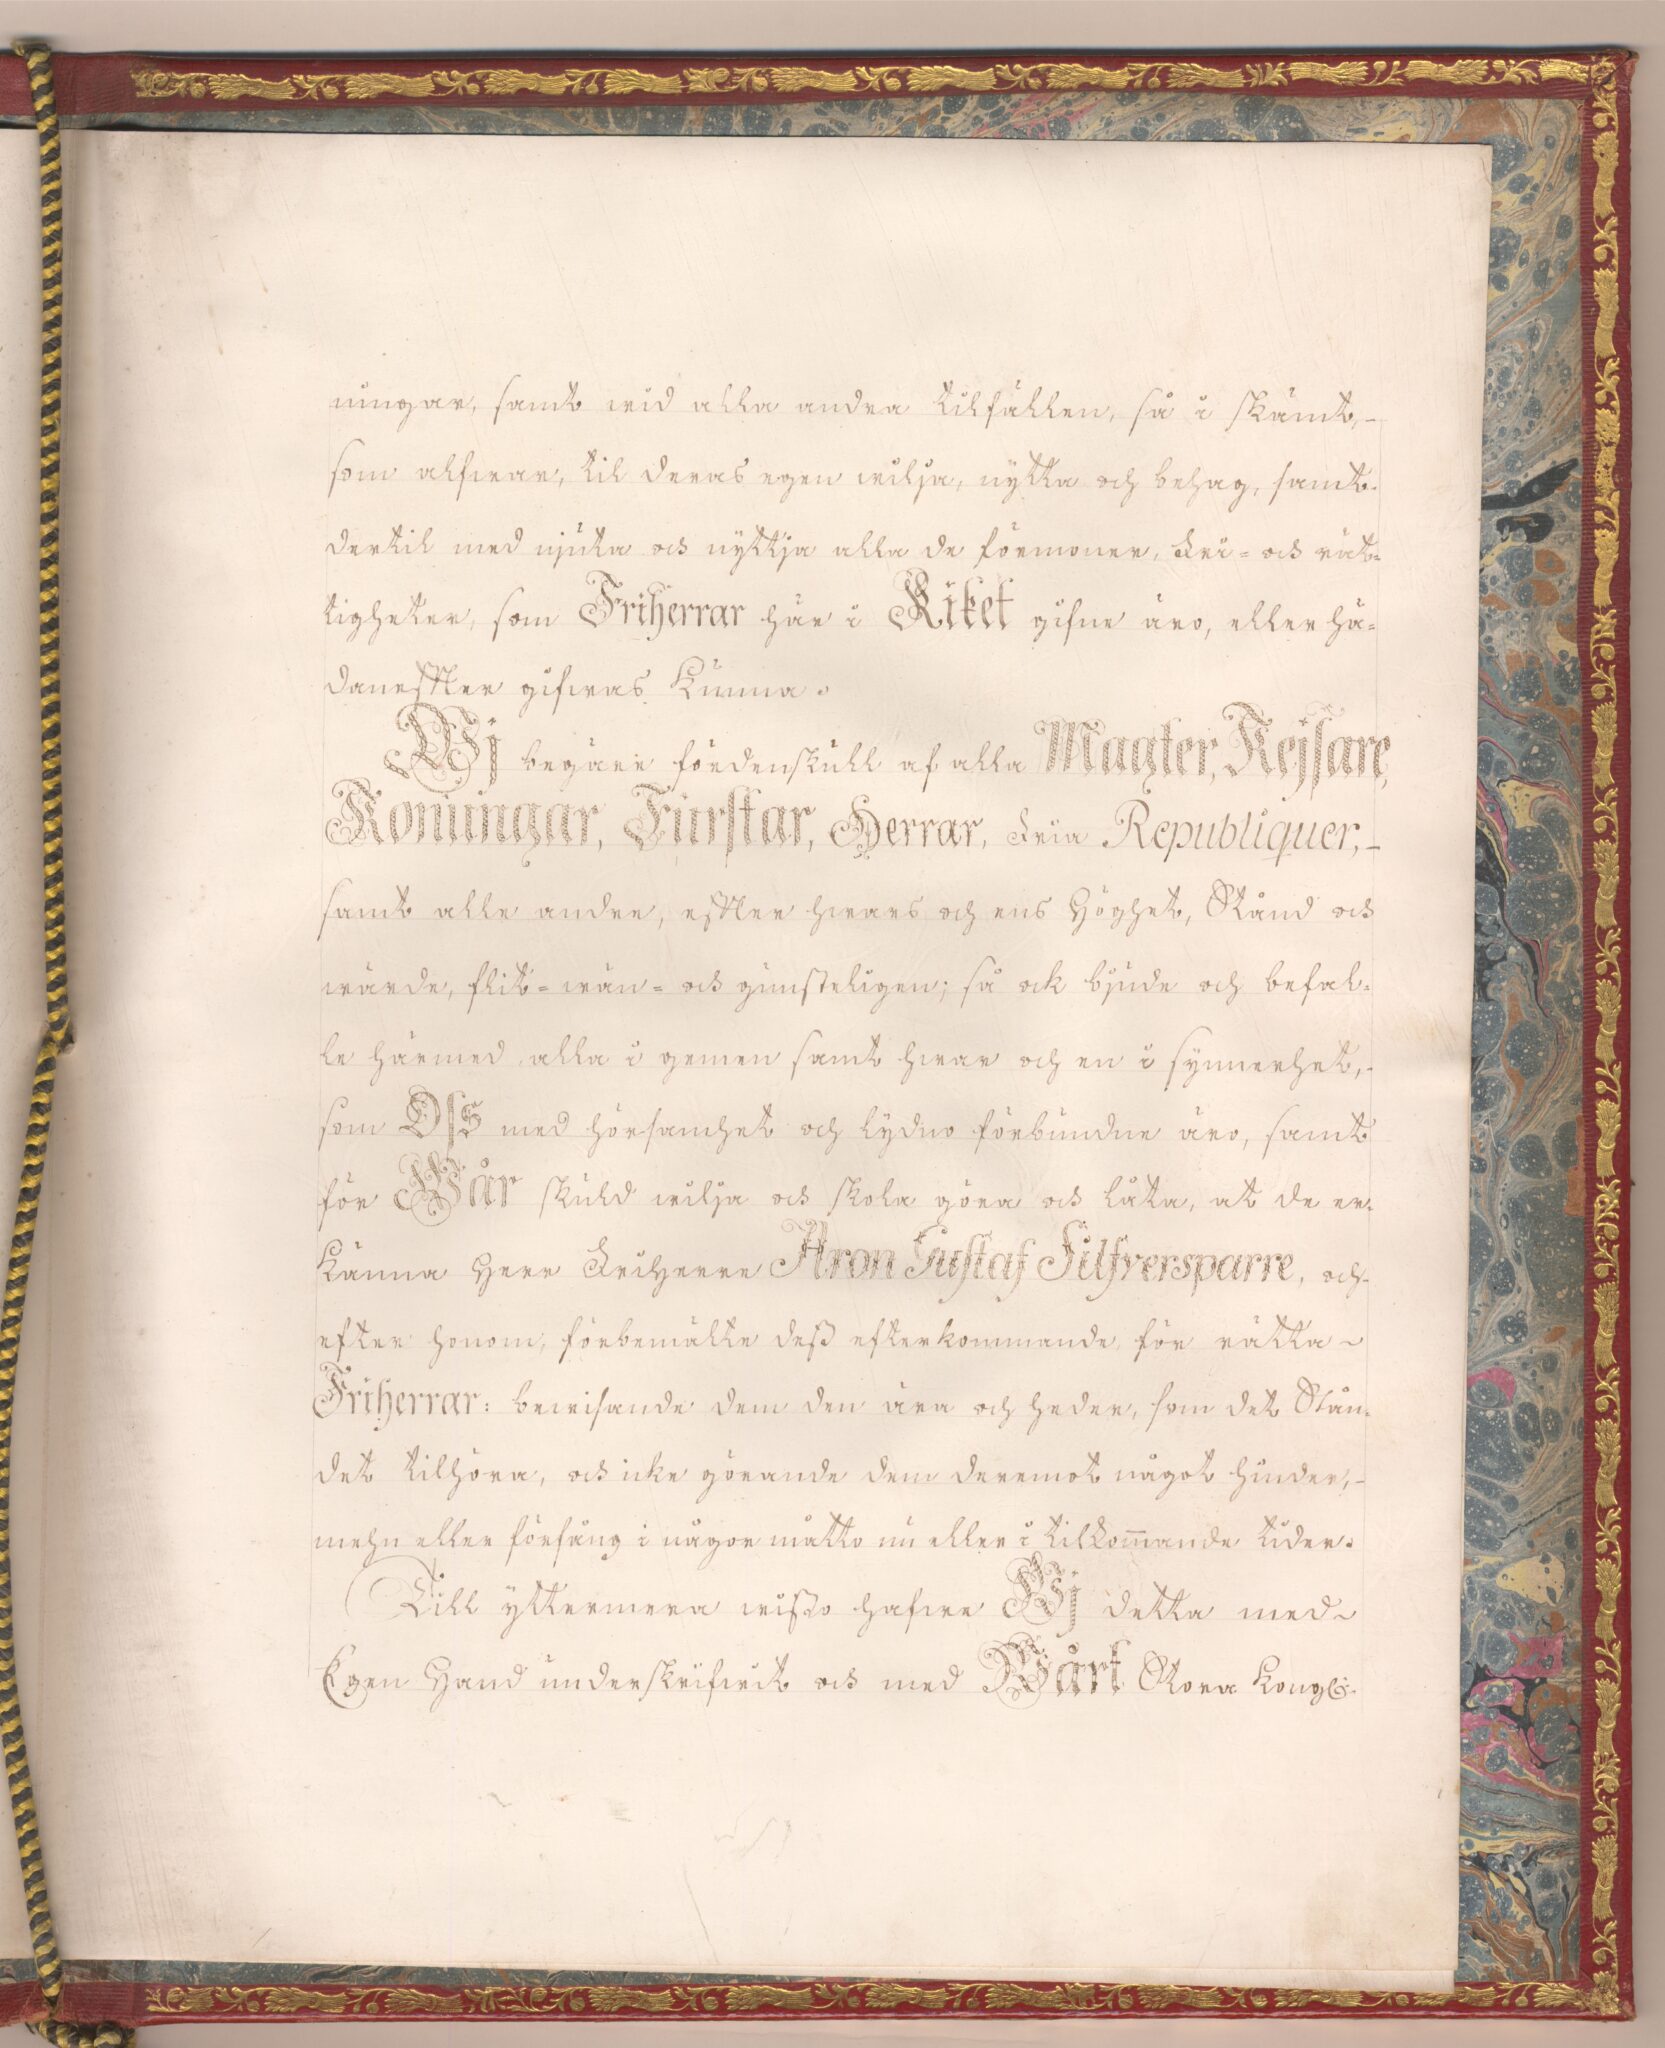 ningar, samt wid alla andra tilfällen, så i skämt,-
som alfwar, til deras egen wilja, nytta och behag, samt
dertil med njuta och nyttja alla de förmoner, Fri- och rät-
tigheter, som Friherrar här i Riket gifne äro, eller hä-
danefter gifwas kunna.
Wj begäre fördenskull af alla Magter, Kejsare,
Konungar, Furstar, Herrar, Fria Republiquer,-
samt alle andre, efter hwars och ens Höghet, Stånd och
wärde, flit- wän- och gunsteligen; så ock bjude och befal-
le härmed alla i gemen samt hwar och en i synnerhet,-
som Oss med hörsamhet och lydno förbundne äro, samt
för Wår skuld wilja och skola göra och låta, at de er-
känna Herr Friherre Aron Gustaf Silfversparre, och
efter honom, förbemälte deß efterkommande för rätta
Friherrar: bewisande dem den ära och heder, som det Stån-
det tilhöra, och icke görande dem deremot något hinder,-
mehn eller förfång i någor måtto nu eller i tilkommande tider.
Till yttermera wißo hafwe Wj detta med
Egen Hand underskrifwit och med Wårt Stora Kongl.